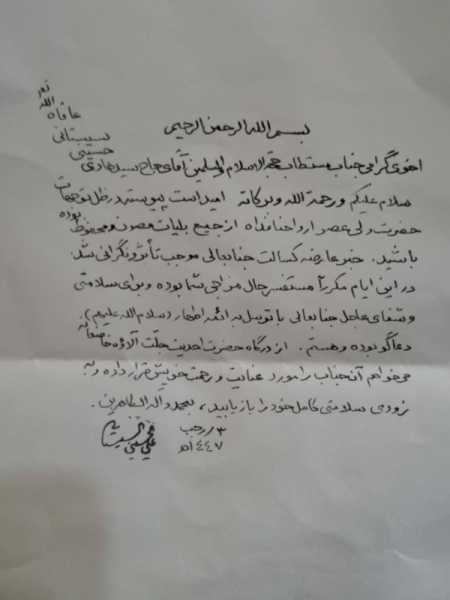 بسم الله الرحمن الرحیم
اخوی گرامی جناب مستطاب حجة الاسلام والمسلمین آقای حاج سید هادی
حسینی
سیستانی
عافاه
الله
سلام علیکم ورحمة الله وبرکاته امید است پیوسته در ظل توجهات
حضرت ولی عصر ارواحنا فداه از جمیع بلیات مصون و محفوظ بوده
باشید. خبر عارضه کسالت جنابعالی موجب تأثر و نگرانی شد.
در این ایام مکرراً مستفسر حال مزاجی شما بوده و برای سلامتی
و شفای عاجل جنابعالی با توسل به ائمه اطهار (سلام الله علیهم)
دعاگو بوده و هستم. از درگاه حضرت احدیت جلّت آلاؤه خاضعانه
می‌خواهم آن جناب را مورد عنایت و رحمت خویش قرار داده و به
زودی سلامتی کامل خود را باز یابید، بمحمد وآله الطاهرین.
۳/رجب
۱٤٤۷هـ
علي الحسيني السيستاني